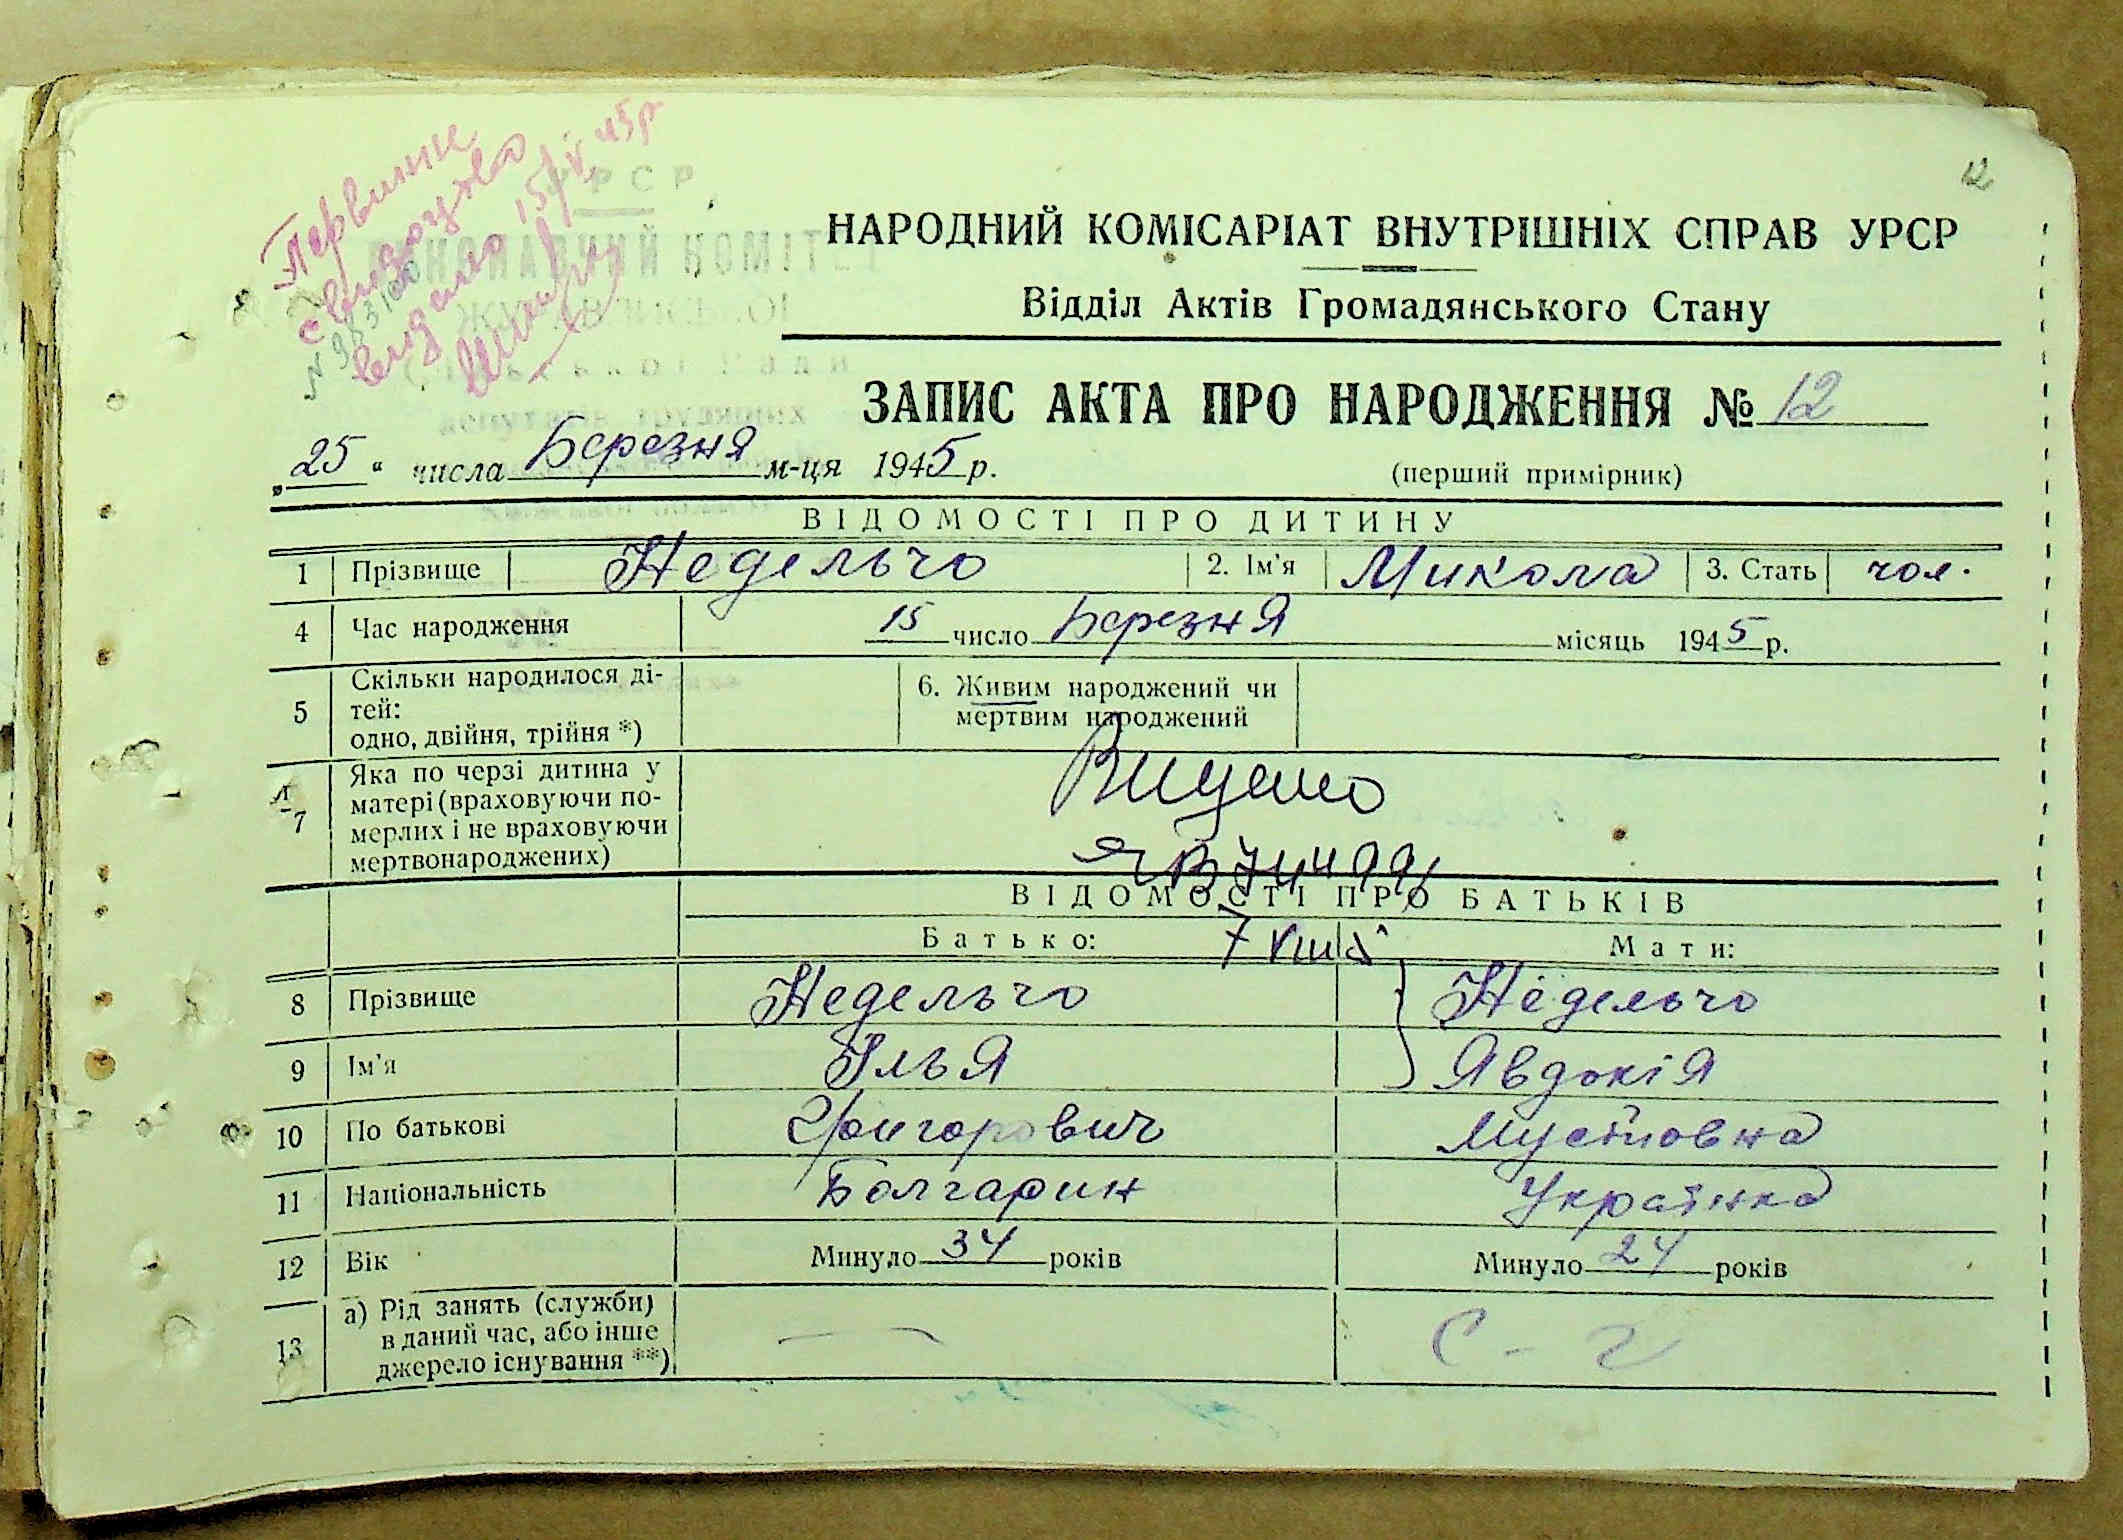 12
Первинне
свидоцтво
видано 15/IX 45р
УРСР
ВИКОНАВЧИЙ КОМІТЕТ
НАРОДНИЙ КОМІСАРІАТ ВНУТРІШНІХ СПРАВ УРСР
Відділ Актів Громадянського Стану
ЗАПИС АКТА ПРО НАРОДЖЕННЯ № 12
„25“ числа Березня м-ця 1945 р.
(перший примірник)
ВІДОМОСТІ ПРО ДИТИНУ
1 Прізвище Недельчо 2. Ім'я Микола 3. Стать чол.
4 Час народження 15 число Березня місяць 1945 р.
5 Скільки народилося ді-
тей:
одно, двійня, трійня *)
6. Живим народжений чи
мертвим народжений
7 Яка по черзі дитина у
матері (враховуючи по-
мерлих і не враховуючи
мертвонароджених)
ВІДОМОСТІ ПРО БАТЬКІВ
Батько: Мати:
8 Прізвище Недельчо Недельчо
9 Ім'я Ілья Явдокія
10 По батькові Григорович Мустовна
11 Національність Болгарин Українка
12 Вік Минуло 34 років Минуло 24 років
13 а) Рід занять (служби)
в даний час, або інше
джерело існування **)
— С - г